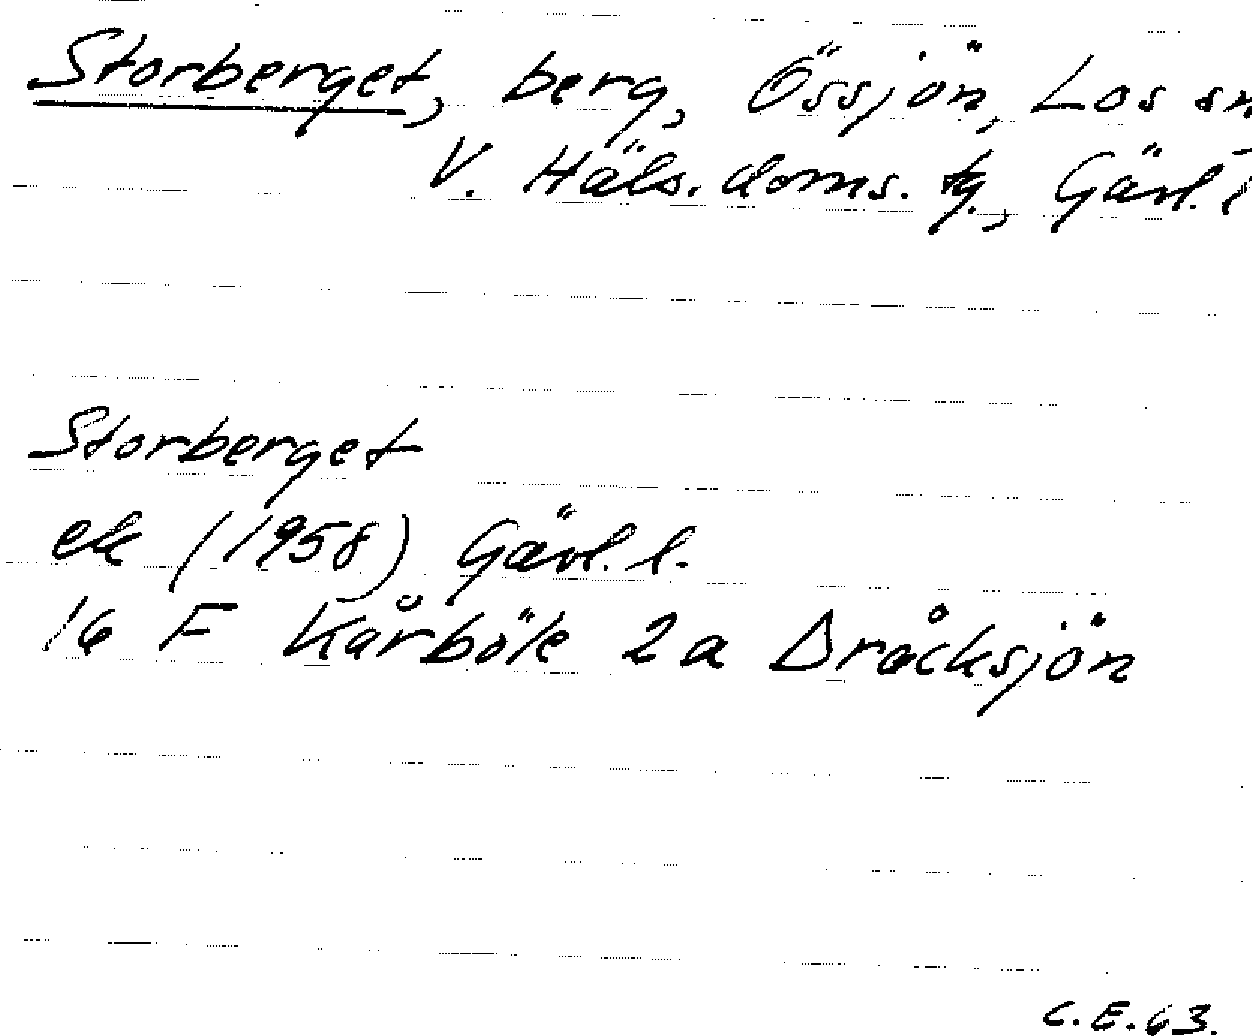 Storberget, berg, Össjön, Los sn
V. Häls. doms. tg., Gävl. l
Storberget
ek (1958) Gävl. l.
16 F Kårböle 2a Dråcksjön
C.E. 63.